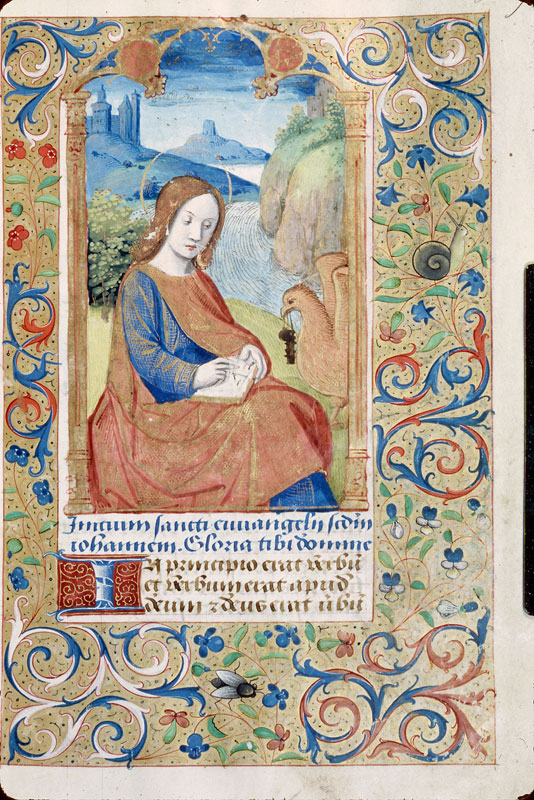 Initium sancti euuangelii sedm
iohannem. Gloria tibi domine
In principio erat verbu
et verbum erat apud
deum ⁊ deus erat ubu